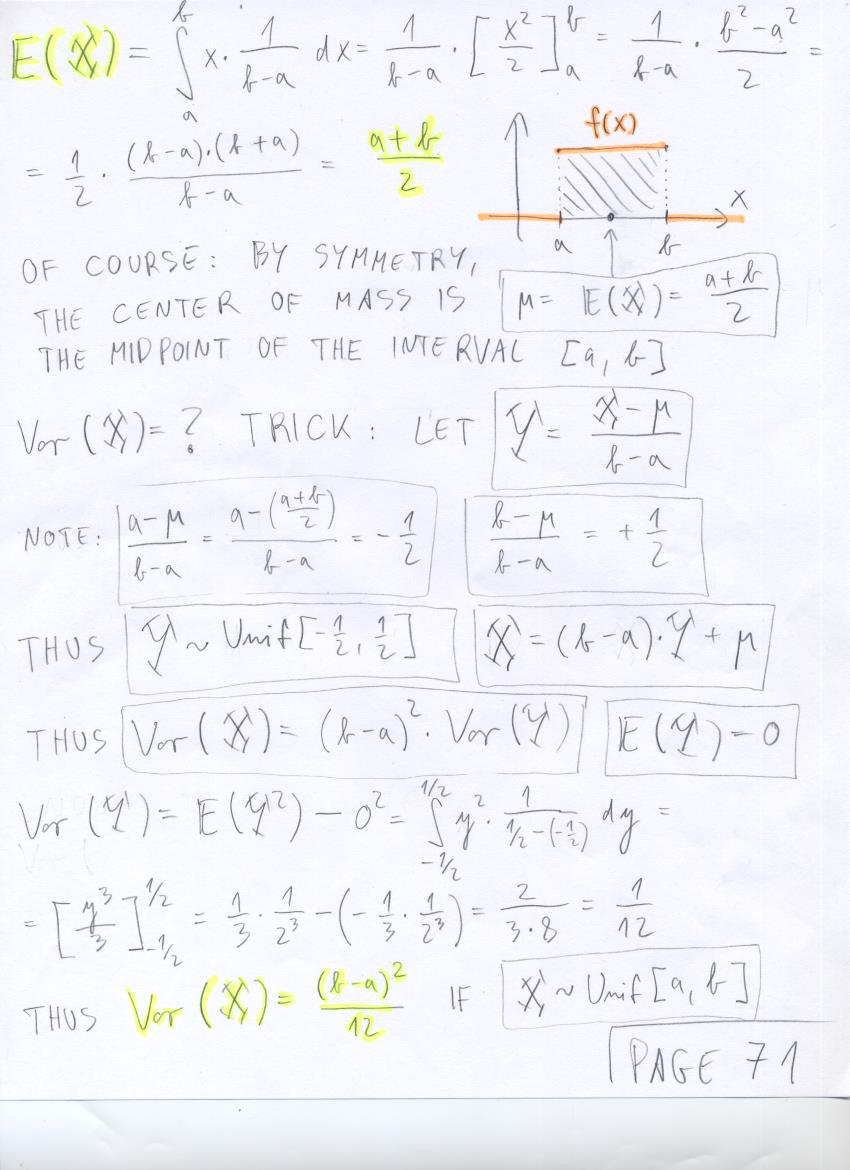 E(X) = ∫_a^b x · 1/(b-a) dx = 1/(b-a) · [x²/2]_a^b = 1/(b-a) · (b²-a²)/2 =
= 1/2 · (b-a)·(b+a)/(b-a) = (a+b)/2
f(x)
x
a b
OF COURSE: BY SYMMETRY,
THE CENTER OF MASS IS μ = E(X) = (a+b)/2
THE MIDPOINT OF THE INTERVAL [a, b]
Var(X) = ? TRICK: LET Y = (X-μ)/(b-a)
NOTE: (a-μ)/(b-a) = (a-((a+b)/2))/(b-a) = -1/2 (b-μ)/(b-a) = +1/2
THUS Y ~ Unif[-1/2, 1/2] X = (b-a)·Y + μ
THUS Var(X) = (b-a)² · Var(Y) E(Y) = 0
Var(Y) = E(Y²) - 0² = ∫_{-1/2}^{1/2} y² · 1/(1/2-(-1/2)) dy =
= [y³/3]_{-1/2}^{1/2} = 1/3 · 1/2³ - (-1/3 · 1/2³) = 2/(3·8) = 1/12
THUS Var(X) = (b-a)²/12 IF X ~ Unif[a, b]
PAGE 71